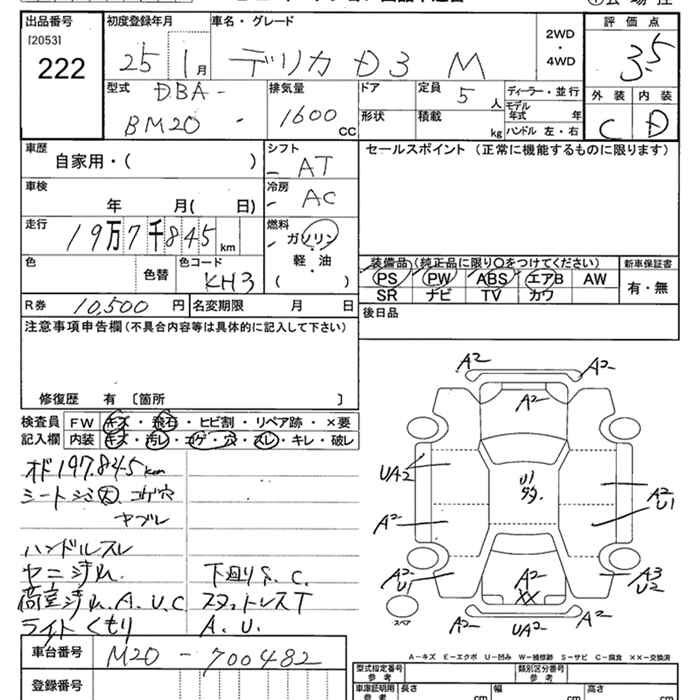 出品番号 初度登録年月 車名・グレード 評価点
[2053]
222
25 1月 デリカ D3 M 2WD・4WD 3.5
型式 DBA-
BM20
排気量 1600 CC
ドア 定員 5人 ディーラー・並行
形状 積載 kg モデル年式 年
ハンドル 左・右
外装 内装
C D
車歴 自家用・( )
シフト AT
セールスポイント (正常に機能するものに限ります)
車検 年 月( 日)
冷房 AC
走行 19万7千845km
燃料 ガソリン・軽・油
( )
色 色替 色コード KH3
装備品(純正品に限り○をつけてください) 新車保証書
PS PW ABS エアB AW 有・無
SR ナビ TV カワ
R券 10,500円 名変期限 月 日
後日品
注意事項申告欄(不具合内容等は具体的に記入して下さい)
修復歴 有 〔箇所 〕
検査員 FW キズ・飛石・ヒビ割・リペア跡・×要
記入欄 内装 キズ・汚レ・コゲ・穴・スレ・キレ・破レ
オド197.845km
シートシミ大、コゲ穴
ヤブレ
ハンドルスレ
ヤニ汚れ 下廻りS.C.
荷室汚れ.A.U.C スタットレスT
ライトくもり A.U.
A2 A2
A2
UA2 U1 A2
U1
A2
A2
U1 A2
XX A3
U2
スペア A2 UA2 A2
A-キズ E-エクボ U-凹み W-補修跡 S-サビ C-腐食 XX-交換済
車台番号 M20-700482
登録番号
型式指定番号 類別区分番号
参考 参考
車庫証明用 長さ 幅 高さ
参考 cm cm cm